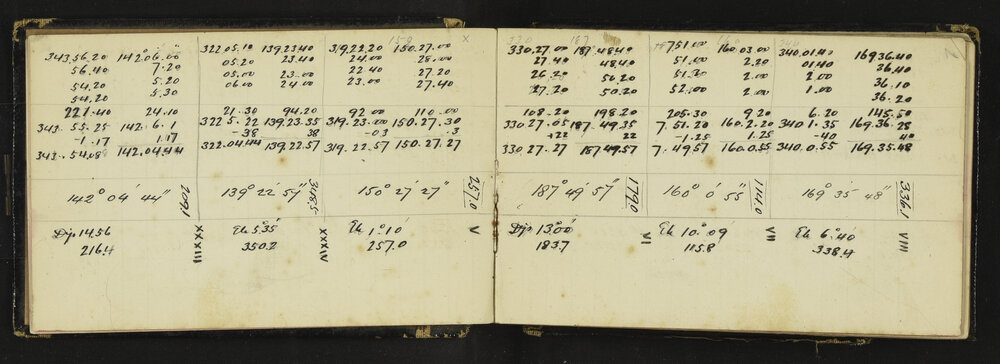 343.56.20 142°06.00 322 05.10 139.23.40 319.22.20 150.27.00
56.40 7.20 05.20 23.40 24.00 28.00
54.20 5.20 05.00 23.00 22.40 27.20
54.20 5.30 06.00 24.00 23.00 27.40
221.40 24.10 21.30 94.20 92.00 110.00
343.55.25 142.6.1 322 5.22 139.23.35 319.23.00 150.27.30
-1.17 1.17 -38 38 -03 .3
343.54.08 142.04.44 322.04.44 139.22.57 319.22.57 150.27.27
142° 04' 44" 209.1 139° 22' 57" 348.5 150° 27' 27" 257.0
Dip 14.56 XXXIII El 5°35' XXXIV El 1°10' V
216.4 350.2 257.0
330.27.00 187.48.40 751.00 160.03.00 340.01.40 169.36.40
27.40 48.40 51.00 2.20 01.40 36.40
26.20 50.20 51.20 2.00 2.00 36.10
27.20 50.20 52.00 2.00 1.00 36.20
108.20 198.20 205.30 9.20 6.20 145.50
330.27.05 187.49.35 7.51.20 160.2.20 340.1.35 169.36.28
+22 22 -1.25 1.25 -40 40
330.27.27 187.49.57 7.49.57 160.0.55 340.0.55 169.35.48
187° 49' 57" 179.0 160° 0' 55" 114.0 169° 35' 48" 336.1
Dip 13°00' VI El 10°09 VII El 6°40 VIII
183.7 115.8 338.4